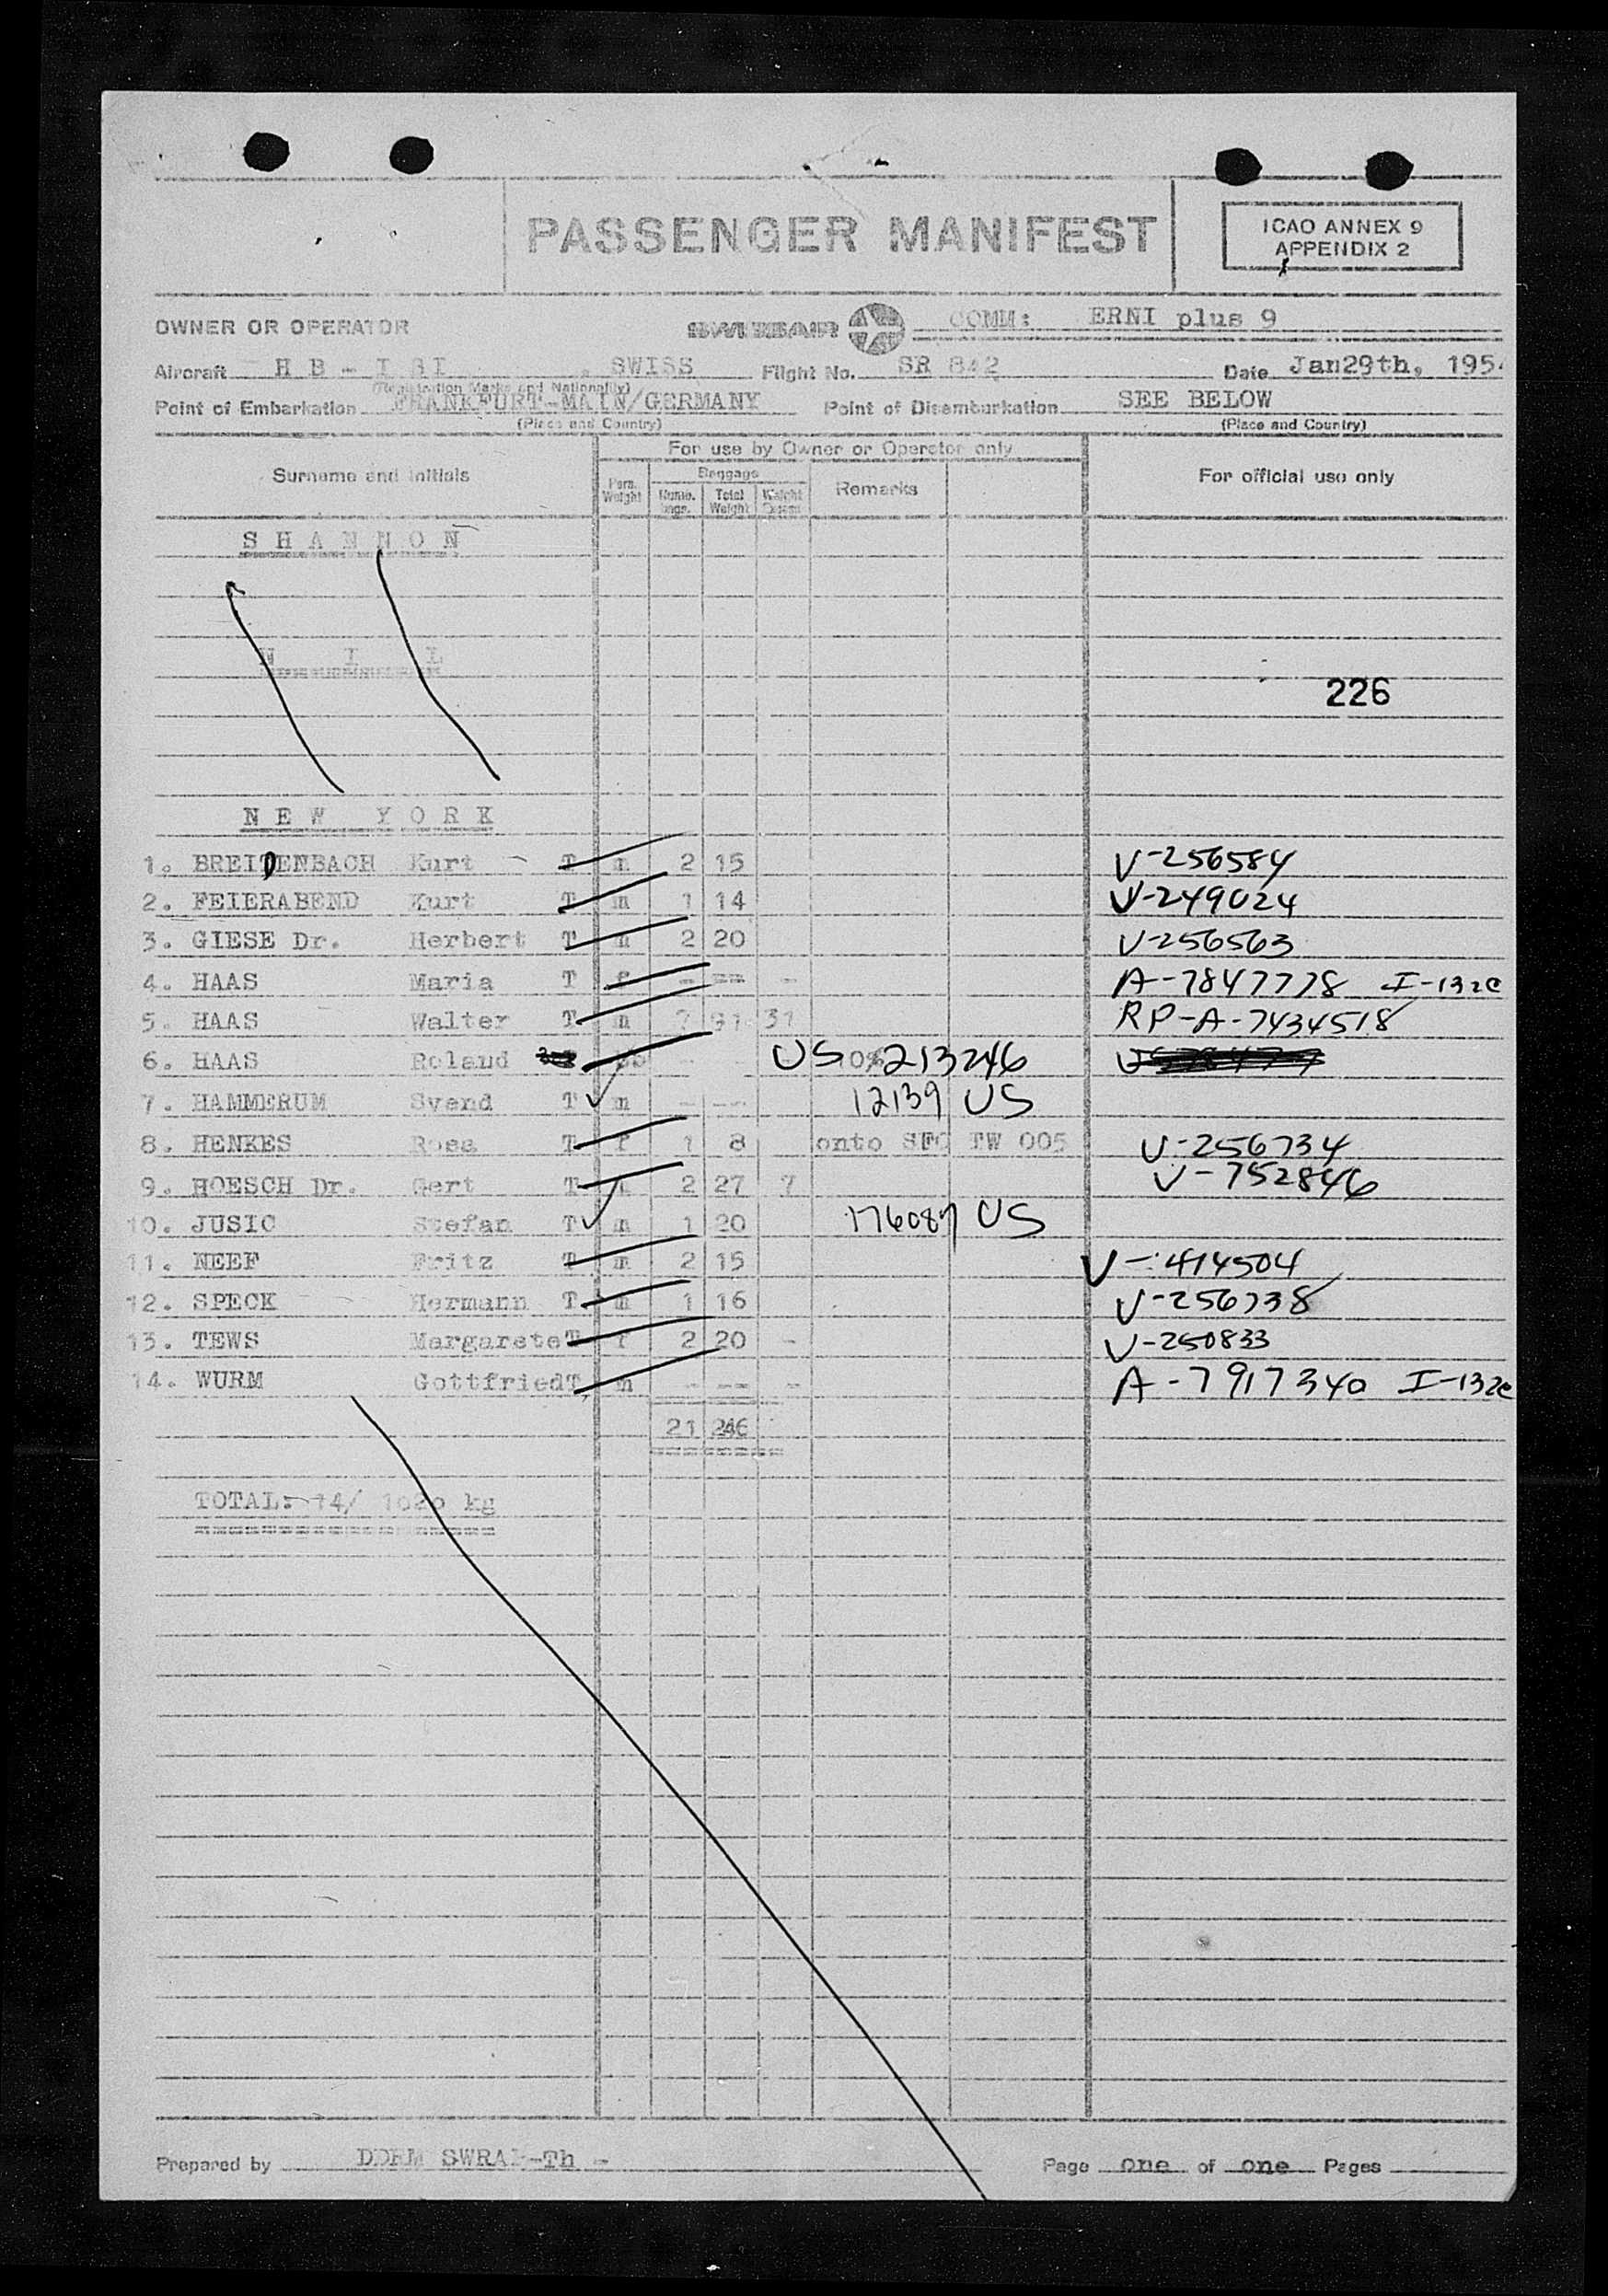 PASSENGER MANIFEST
ICAO ANNEX 9
APPENDIX 2
OWNER OR OPERATOR SWISSAIR COMM: ERNI plus 9
Aircraft H B - I , SWISS Flight No. SR 842 Date Jan29th, 195
(Registration Marks and Nationality)
Point of Embarkation FRANKFURT-MAIN/GERMANY Point of Disembarkation SEE BELOW
(Place and Country) (Place and Country)
For use by Owner or Operator only
Surname and initials Pers. Weight Baggage Remarks For official use only
Total Weight Weight
S H A N N O N
N I L
226
N E W Y O R K
1. BREIDENBACH Kurt T m 2 15 V-256584
2. FEIERABEND Kurt T m 1 14 V-249024
3. GIESE Dr. Herbert T m 2 20 V-256563
4. HAAS Maria T f - -- - A-7847778 I-132c
5. HAAS Walter T m 7 91 31 RP-A-7434518
6. HAAS Roland - US 213246
7. HAMMERUM Svend T m - -- 12139 US
8. HENKES Rosa T f 1 8 onto SFO TW 005 V-256734
9. HOESCH Dr. Gert T 2 27 7 V-752846
10. JUSIC Stefan T m 1 20 176087 US
11. NEEF Fritz T m 2 15 V-414504
12. SPECK Hermann T m 1 16 V-256738
13. TEWS Margarete T f 2 20 - V-250833
14. WURM Gottfried T m - -- - A-7917340 I-132c
21 246
TOTAL: 14/ kg
Prepared by -Th - Page one of one Pages